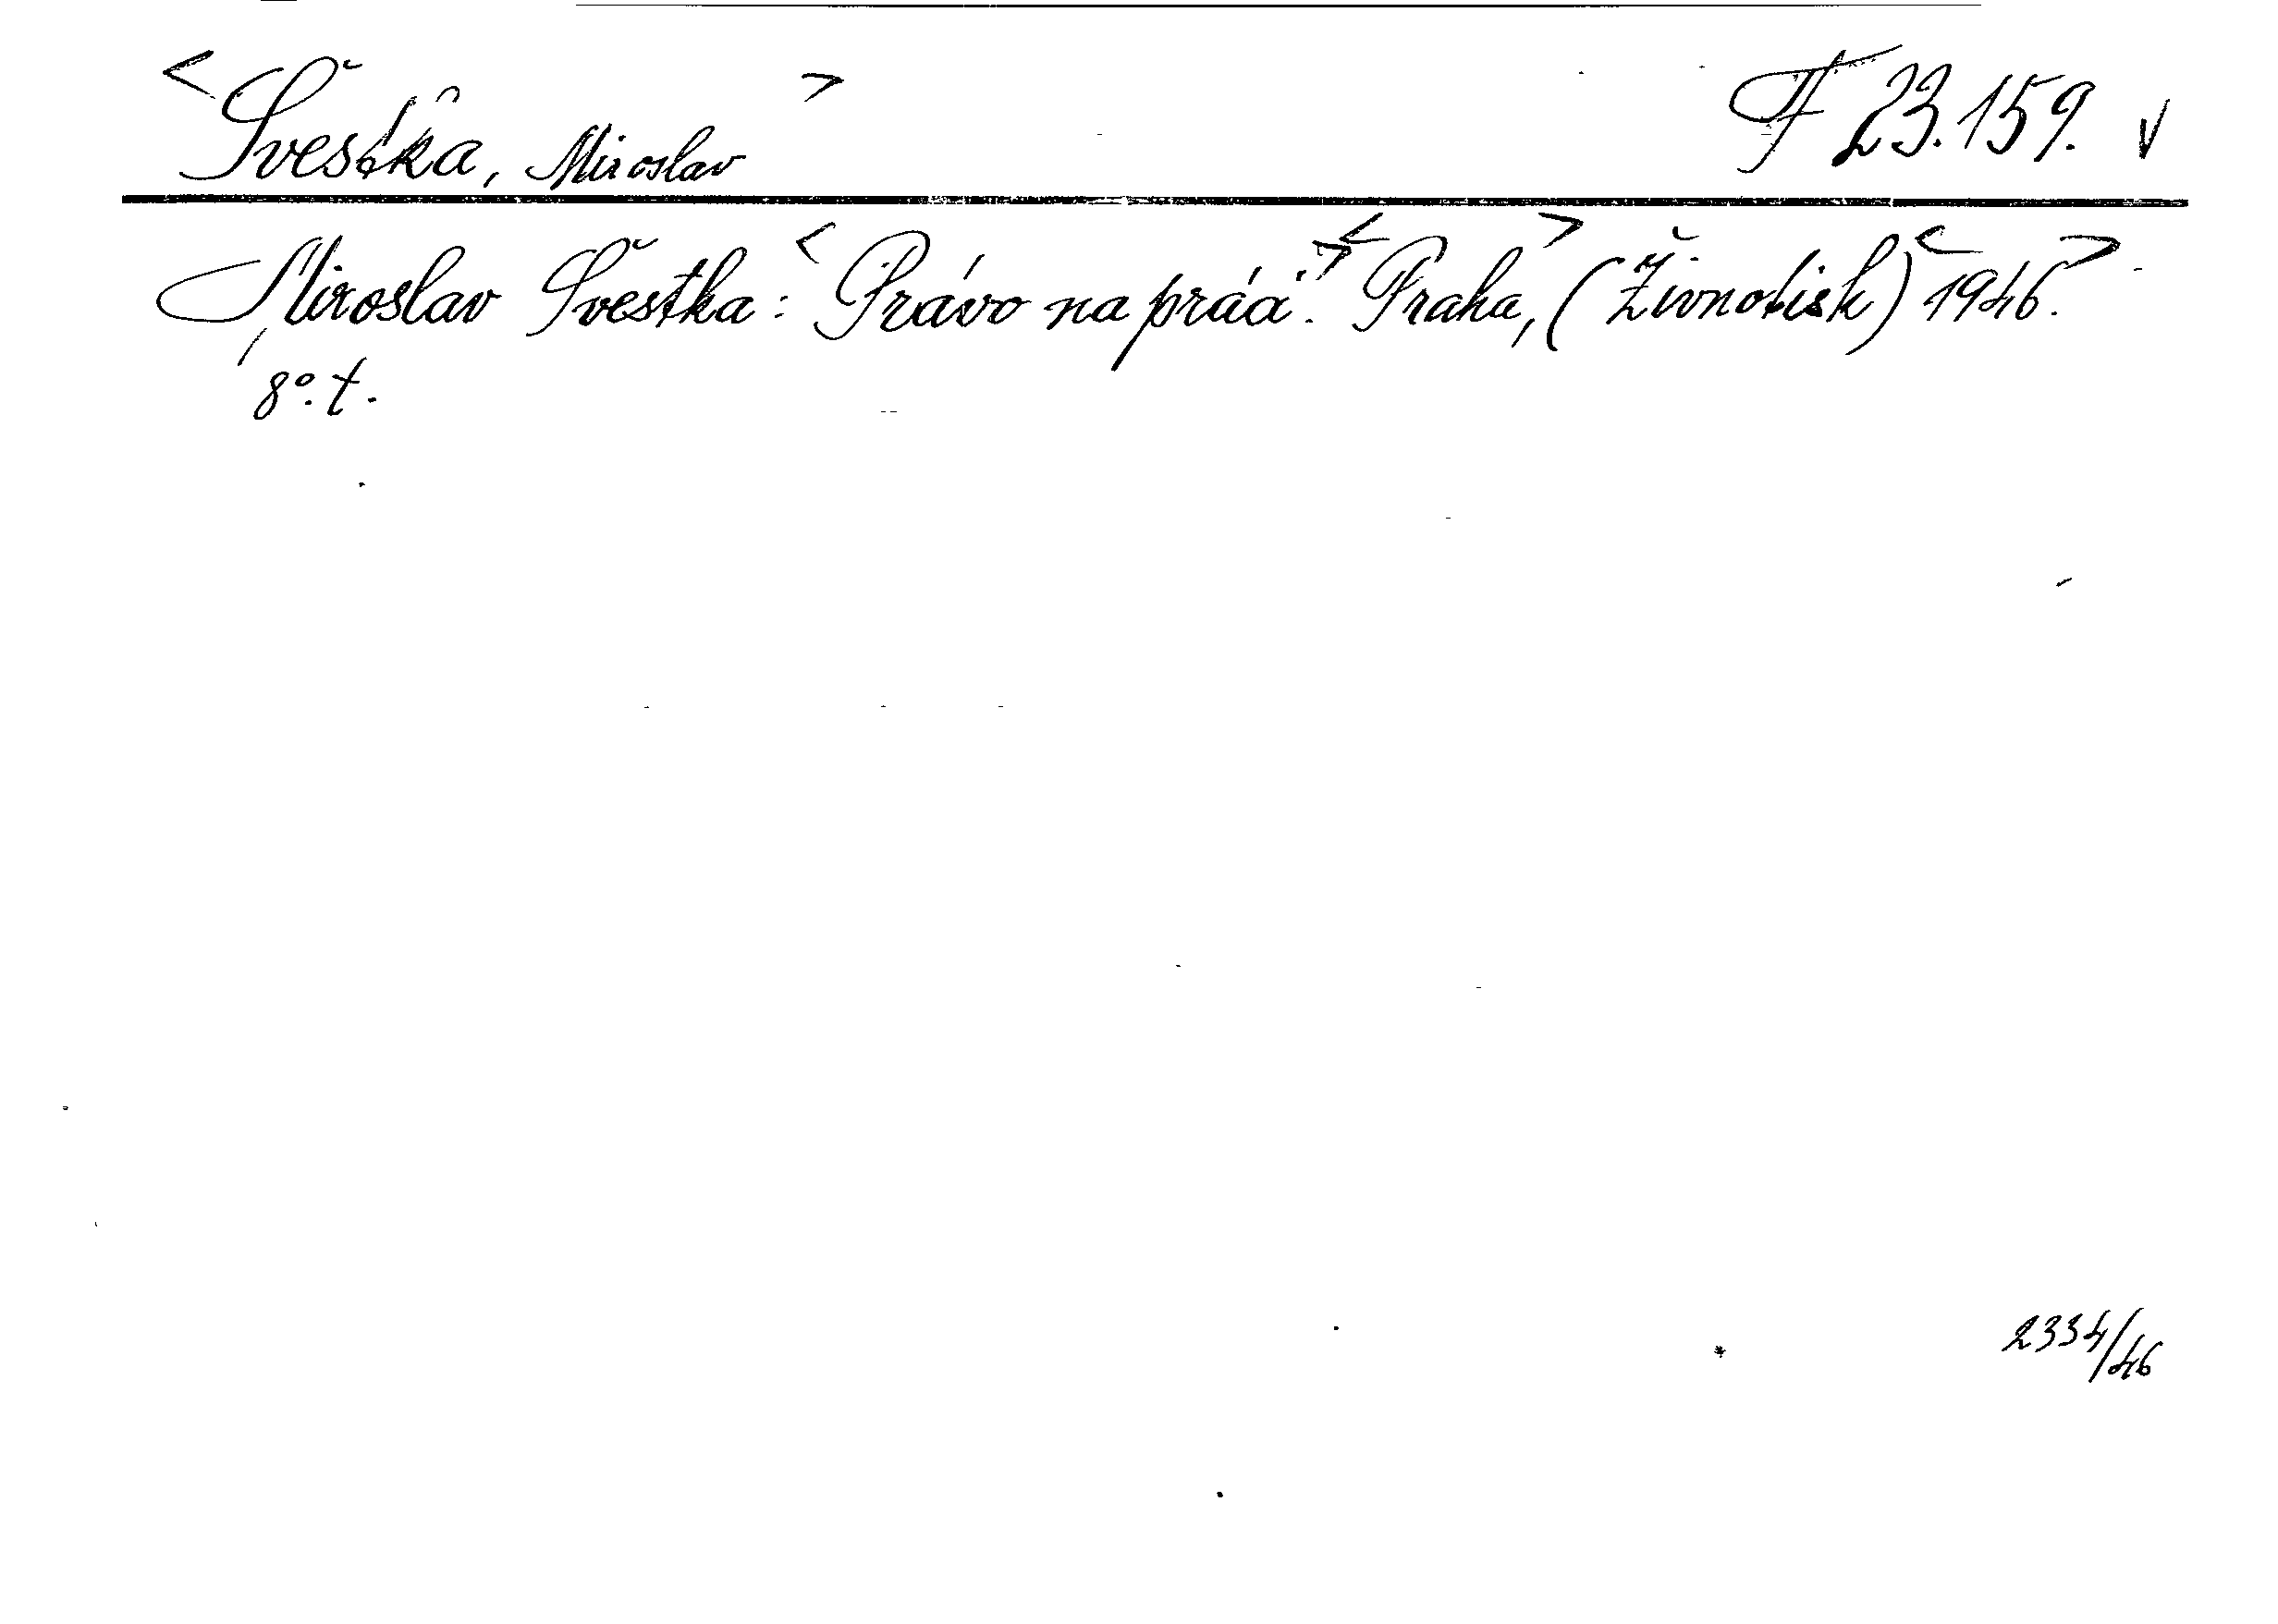 <Švestka, Miroslav> F 23.159. v
Miroslav Švestka: <Právo na práci.> <Praha,> (Živnotisk) <1946.>
8°. t.
2334/46